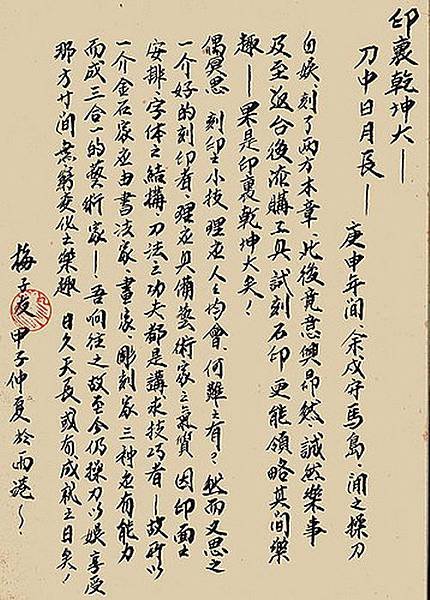 印裏乾坤大—
刀中日月長—
庚申年間、余戍守馬島、閒之操刀
自娛、刻了兩方木章、此後竟意興昂然、誠然樂事
及至返台後添購工具試刻石印更能領略其間樂
趣—果是印裏乾坤大矣！
偶冥思 刻印土小技 理應人人均會、何難之有？然而又思之
一介好的刻印者理應具備藝術家之氣質 因印面之
安排、字体之結構、刀法之功夫都是講求技巧者—故所以
一介金石家應由書法家、畫家、雕刻家 三種應有能力
而成三合一的藝術家—吾嚮往之故至今仍操刀以娛享受
那方寸間無窮變化之樂趣 日久天長或有成就之日矣！
梅子友 甲子仲夏於雨港～